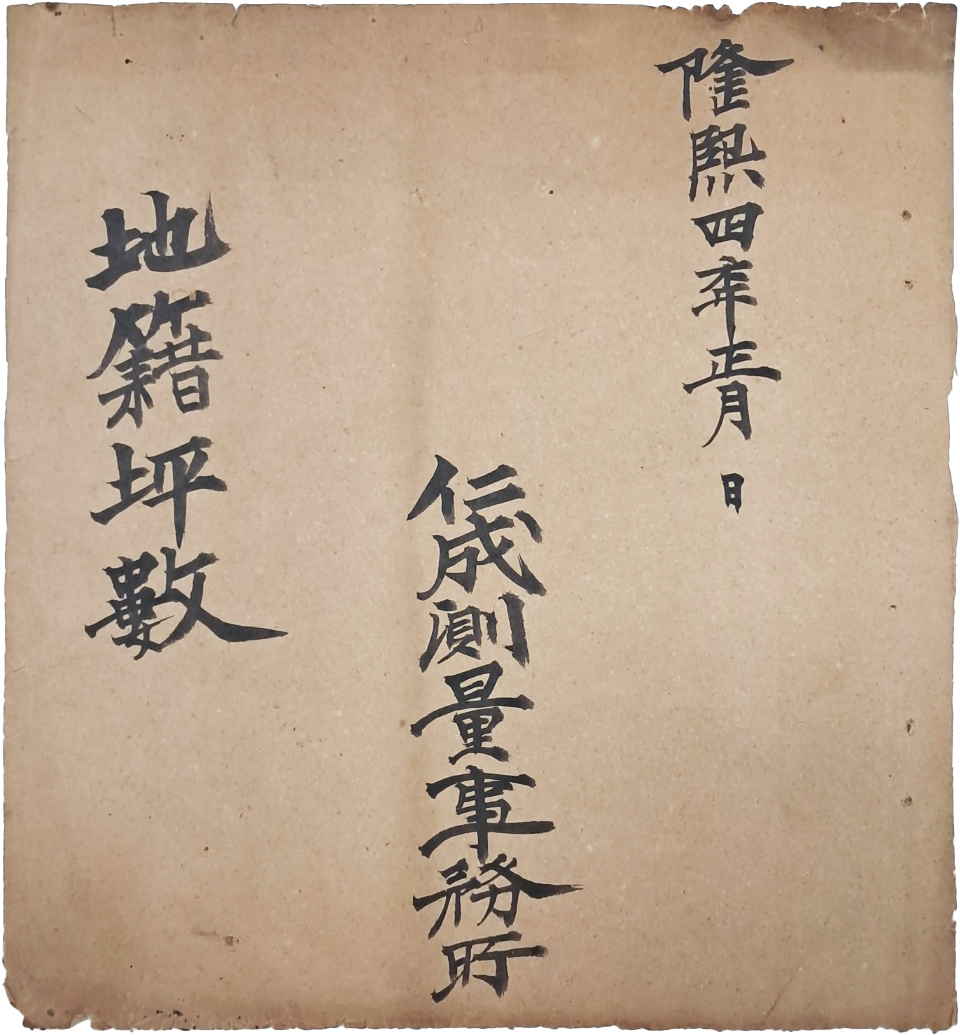 隆熙四年正月 日
仁成測量事務所
地籍坪數